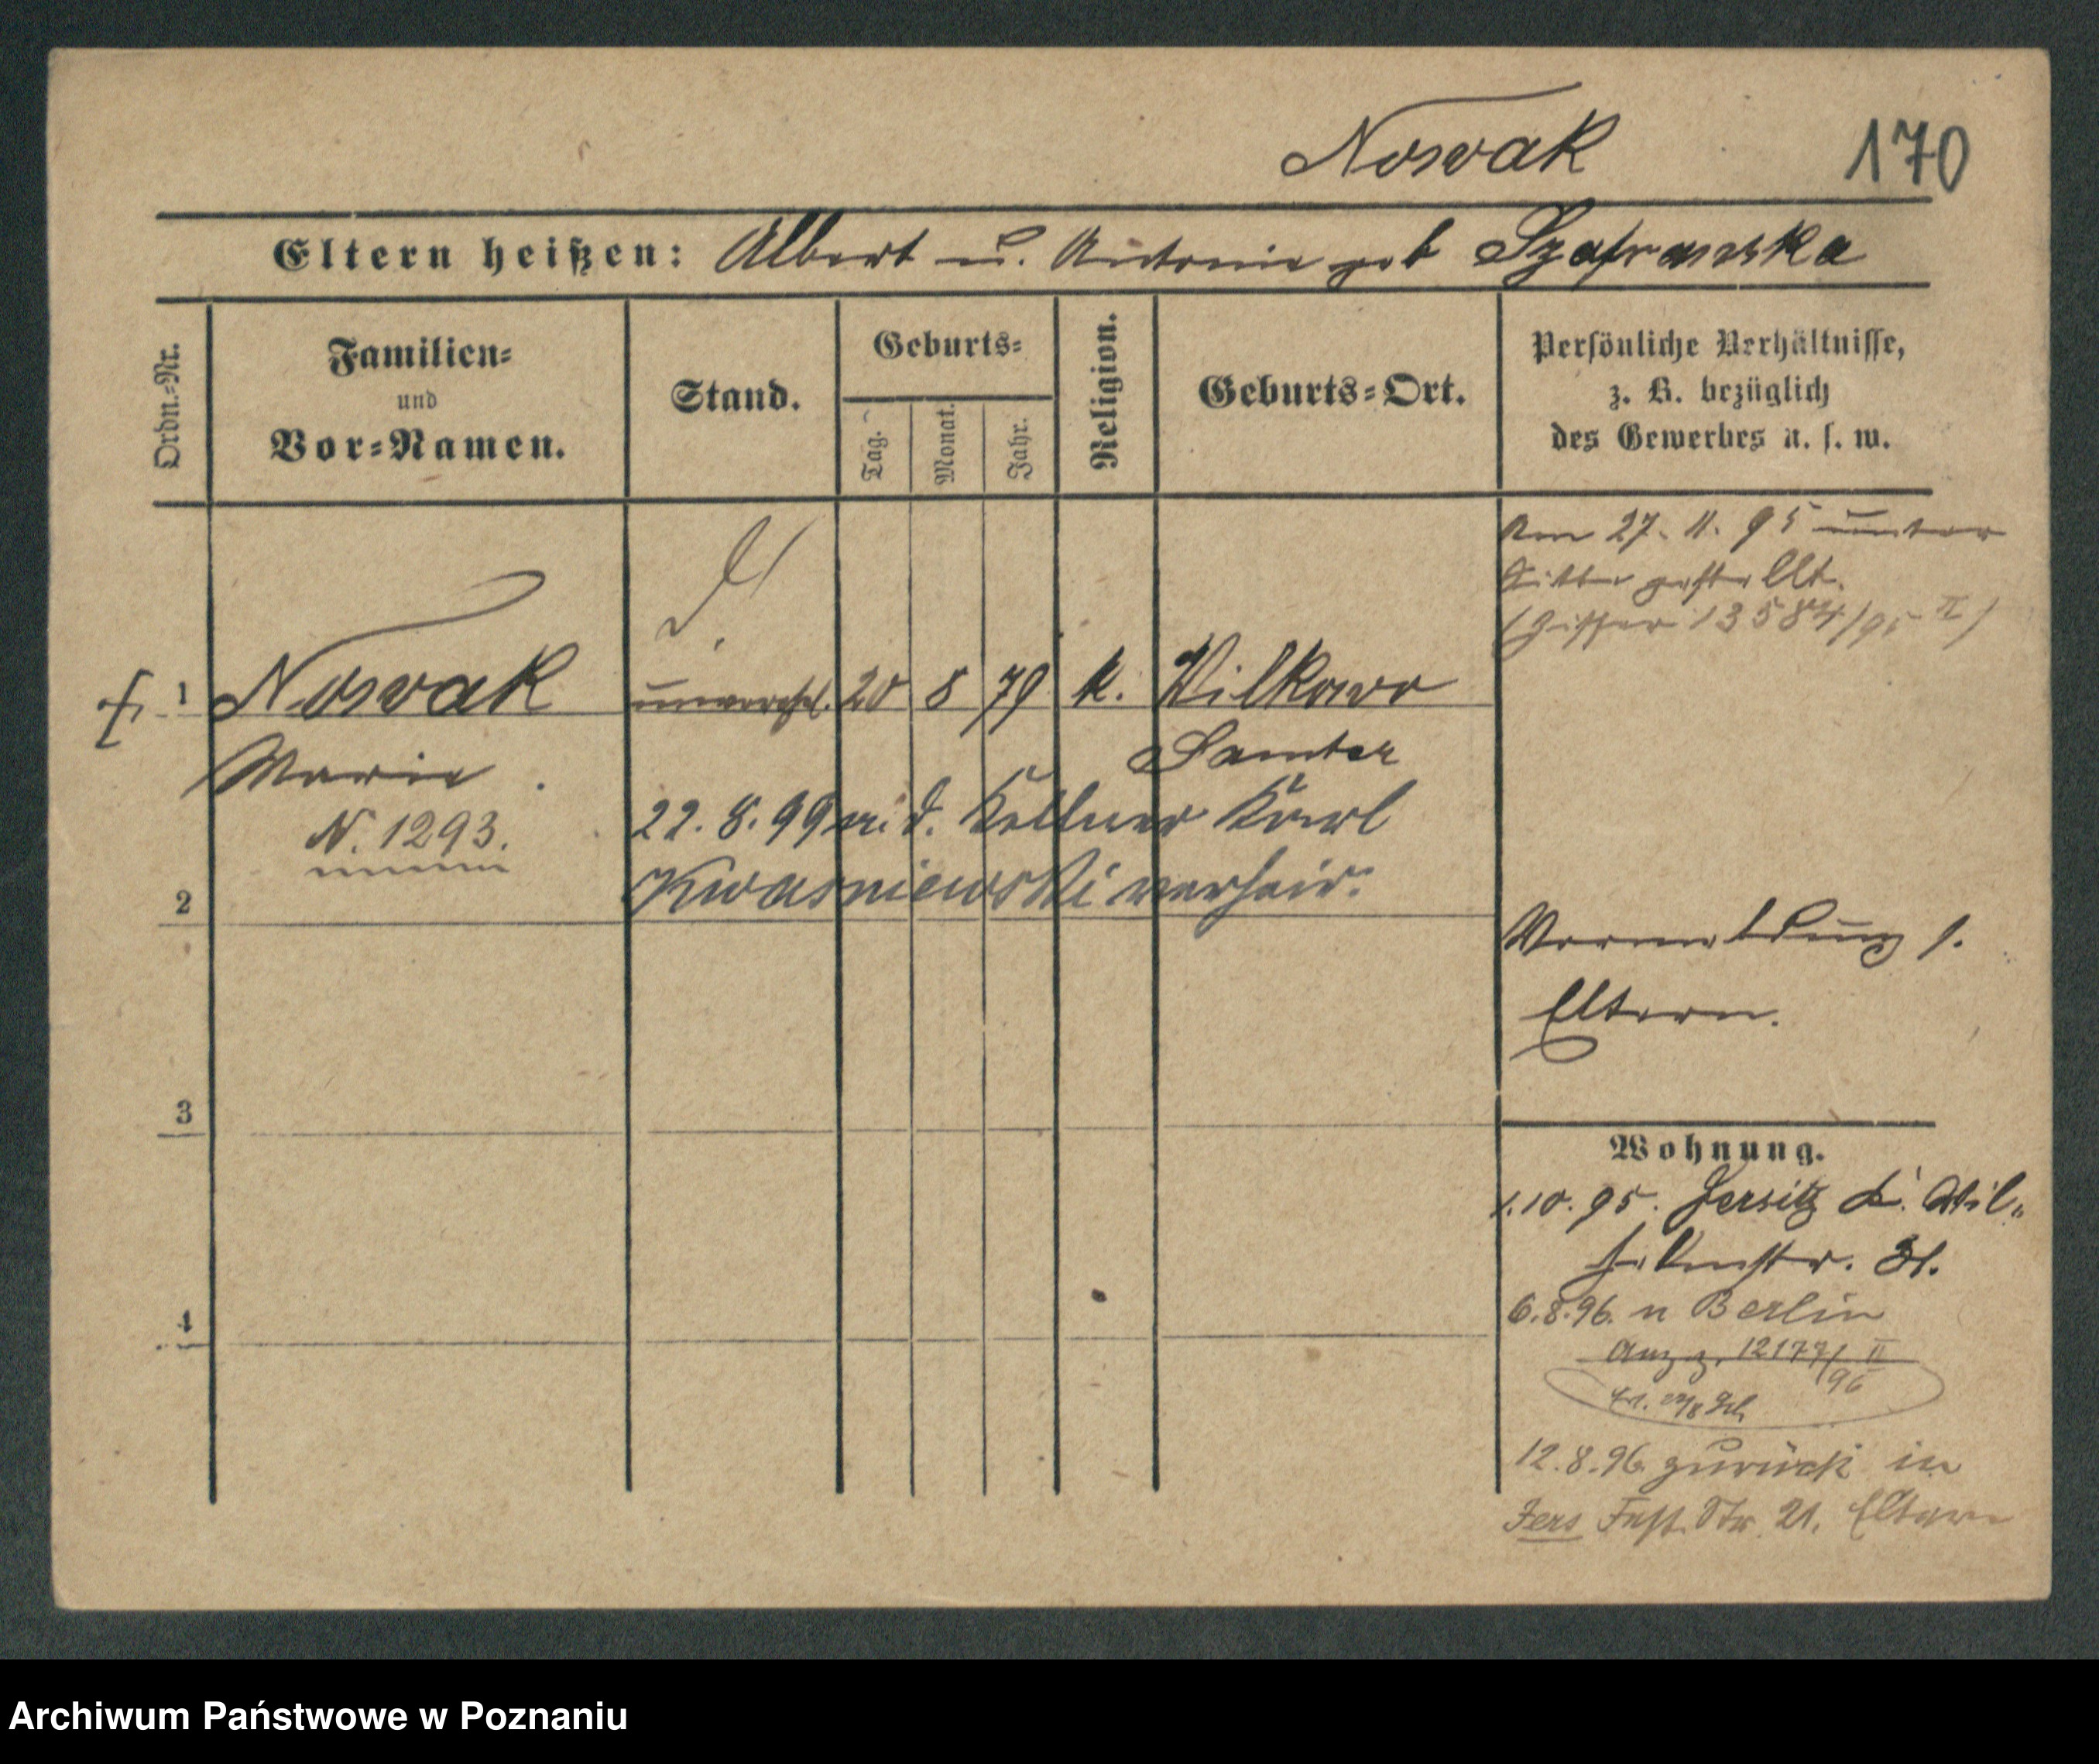 Nowak 170
Eltern heißen: Albert u. Antonie geb Szafranska
Ordn.=Nr.
Familien=
und
Vor=Namen.
Stand.
Geburts=
Tag.
Monat.
Jahr.
Religion.
Geburts=Ort.
Persönliche Verhältnisse,
z. B. bezüglich
des Gewerbes u. s. w.
Am 27. 11. 95 unter
Sitte gestellt.
(Ziffer 13584/95 II)
1 Nowak unverehel. 20 8 79 k. Wilkowo
Marie Samter
N. 1293. 22. 8. 99 m. d. Kellner Karl
2 Kwasniewski verheir.
Vormeldung s.
Eltern.
3
4
Wohnung.
1. 10. 95. Jersitz Wil„
helmstr. 31.
6. 8. 96. n Berlin
Anz z. 12177/96 II
12. 8. 96 zurück in
Jers Str. 21. Eltern
Archiwum Państwowe w Poznaniu